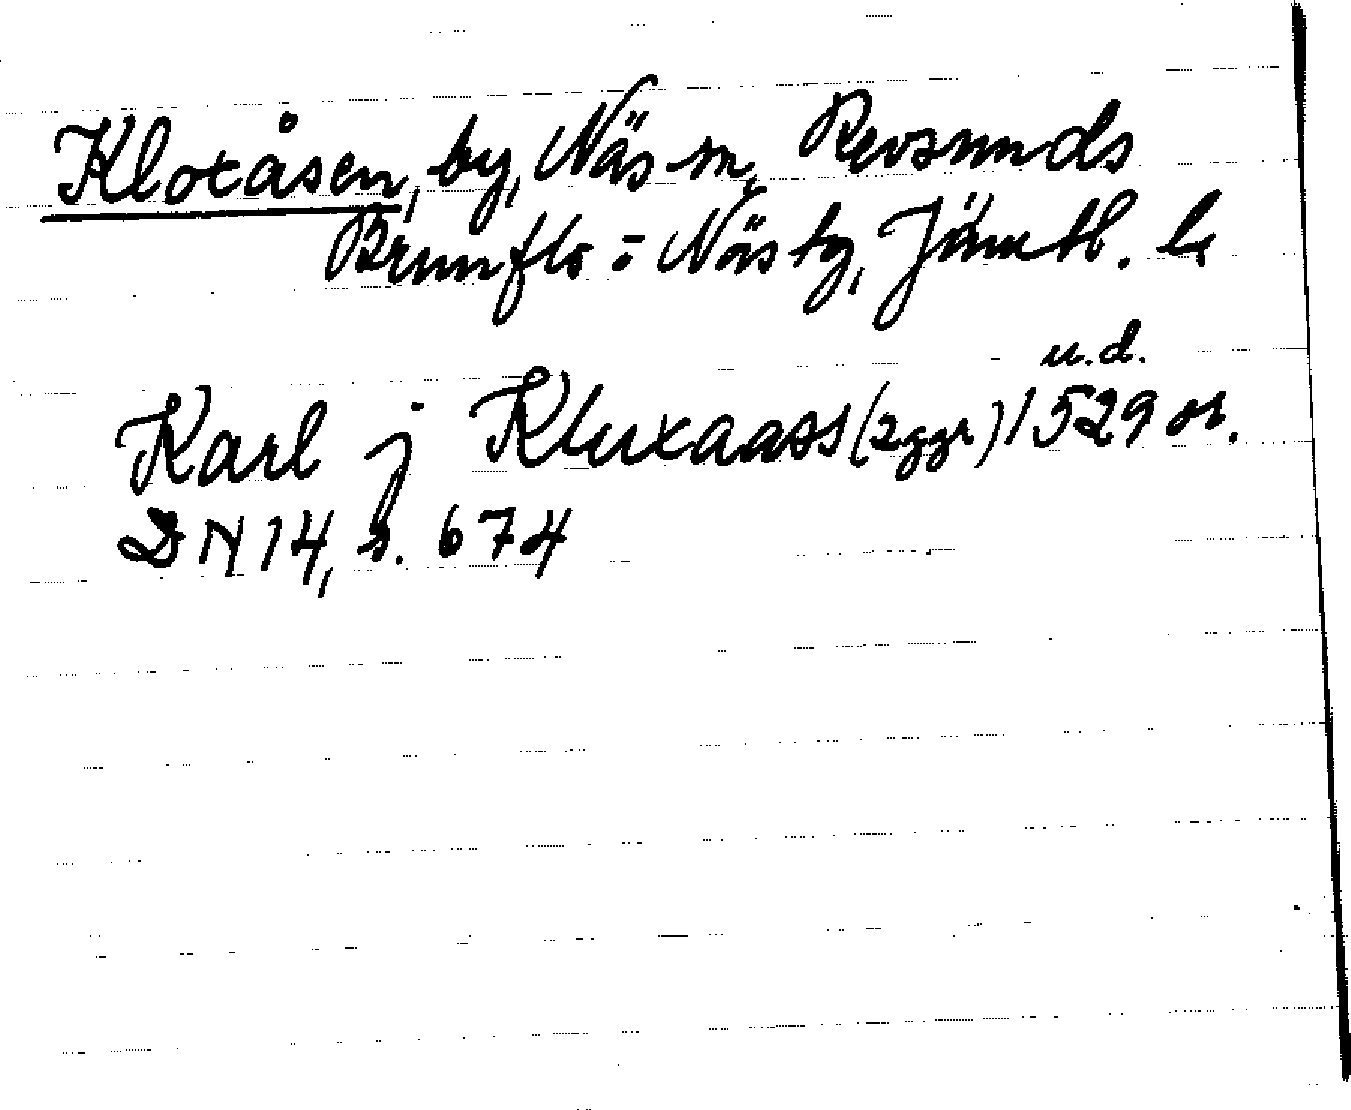 Kloxåsen, by, Näs sn, Revsunds
Brunflo o Näs tg, Jämtl. l.
Karl j Kluxaass (2 ggr) 1529 u.d. or.
DN 14, s. 674